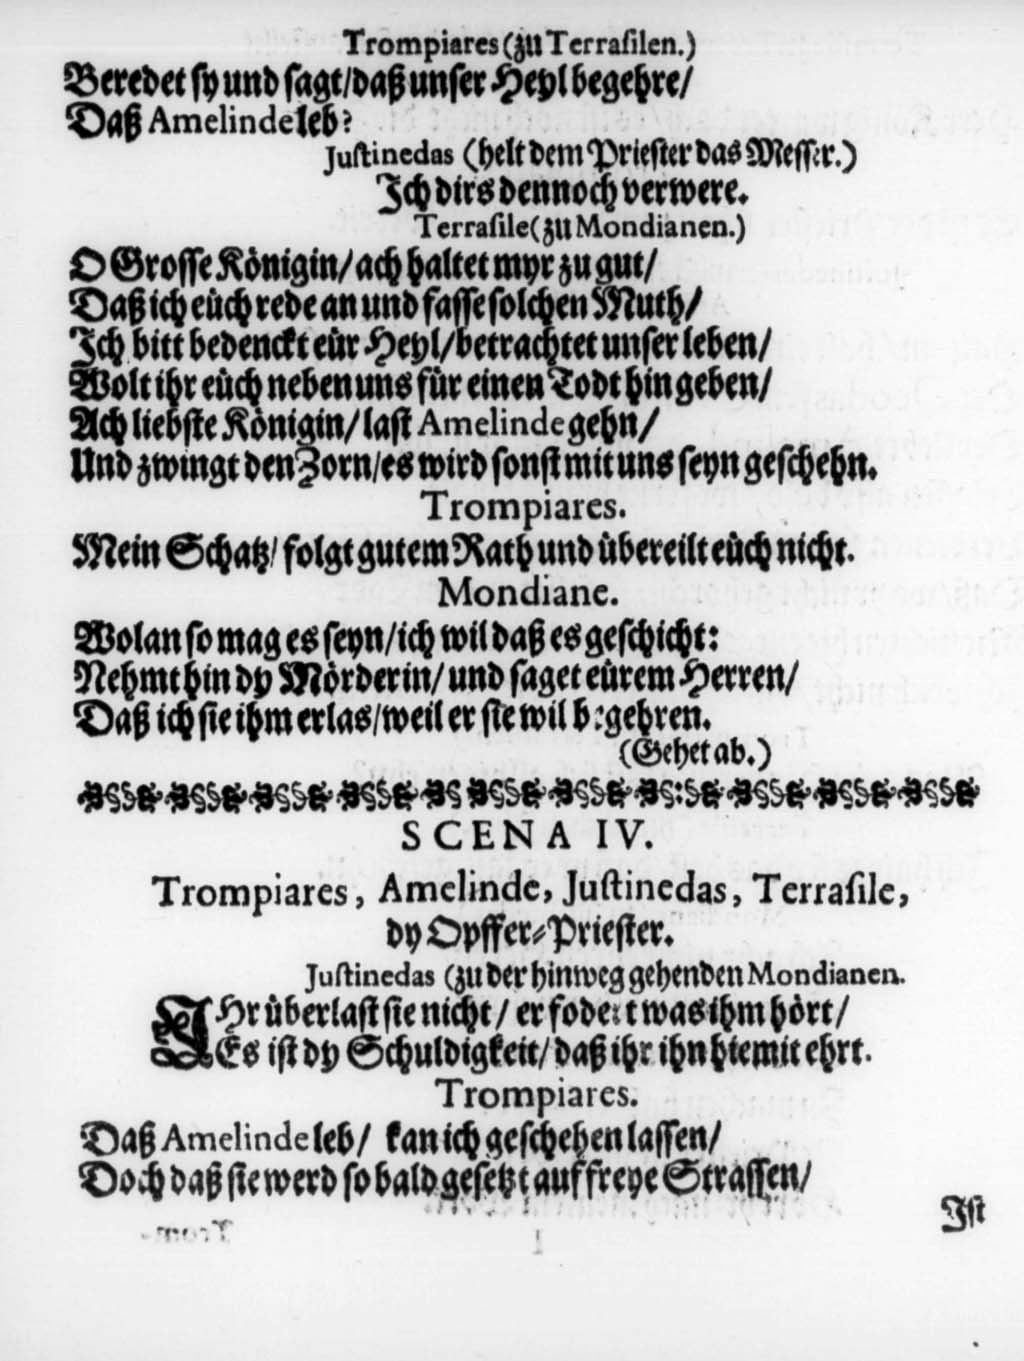 Trompiares (zu Terrasilen.)
Beredet sy und sagt/daß unser Heyl begehre/
Daß Amelinde leb?
Justinedas (helt dem Priester das Messer.)
Ich dirs dennoch verwere.
Terrasile (zu Mondianen.)
O Grosse Königin/ ach haltet myr zu gut/
Daß ich eüch rede an und fasse solchen Muth/
Ich bitt bedenckt eür Heyl/betrachtet unser leben/
Wolt ihr eüch neben uns für einen Todt hin geben/
Ach liebste Königin/ last Amelinde gehn/
Und zwingt den Zorn/es wird sonst mit uns seyn geschehn.
Trompiares.
Mein Schatz/ folgt gutem Rath und übereilt eüch nicht.
Mondiane.
Wolan so mag es seyn/ich wil daß es geschicht:
Nehmt hin dy Mörderin/ und saget eürem Herren/
Daß ich sie ihm erlas/weil er sie wil begehren.
(Gehet ab.)
SCENA IV.
Trompiares, Amelinde, Justinedas, Terrasile,
dy Opffer-Priester.
Justinedas (zu der hinweg gehenden Mondianen.
IHr überlast sie nicht/ er fodert was ihm hört/
Es ist dy Schuldigkeit/ daß ihr ihn hiemit ehrt.
Trompiares.
Daß Amelinde leb/ kan ich geschehen lassen/
Doch daß sie werd so bald gesetzt auf freye Strassen/
Ist